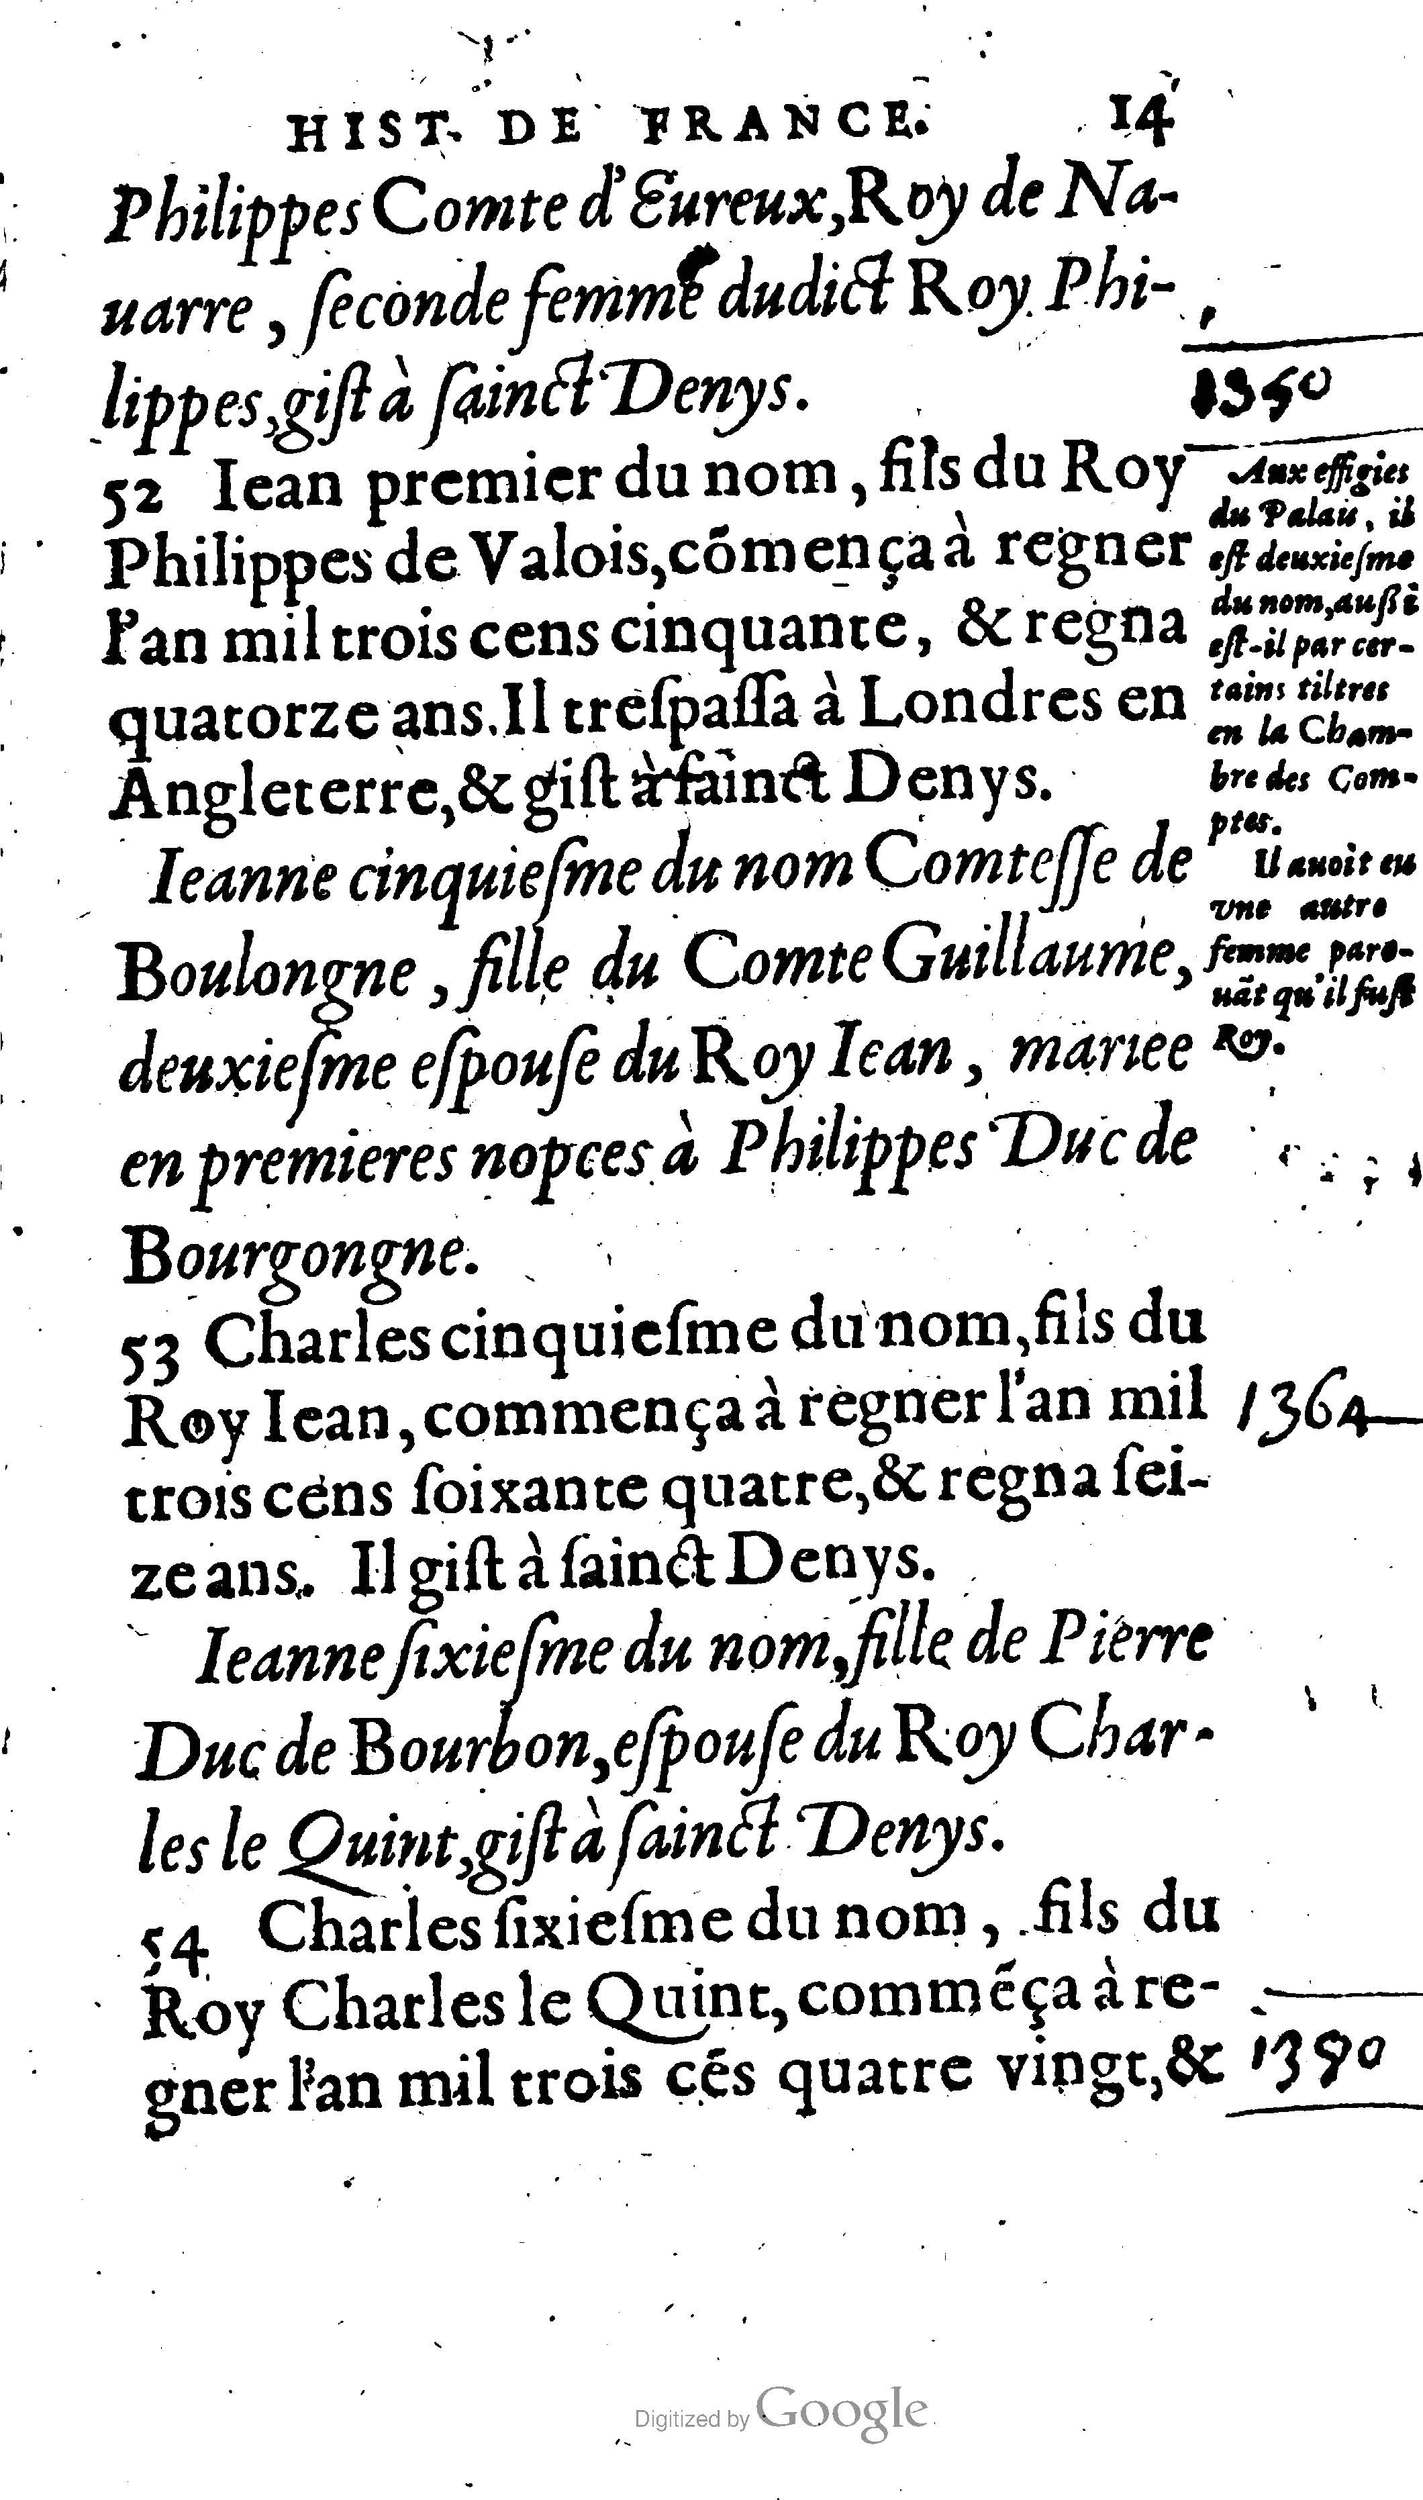 HIST. DE FRANCE. 14
Philippes Comte d'Eureux, Roy de Na-
uarre, ſeconde femme dudict Roy Phi-
lippes, giſt à ſainct Denys.
52 Iean premier du nom, fils du Roy
Philippes de Valois, cõmença à regner
l'an mil trois cens cinquante, & regna
quatorze ans. Il treſpaſſa à Londres en
Angleterre, & giſt à ſainct Denys.
Ieanne cinquieſme du nom Comteſſe de
Boulongne, fille du Comte Guillaume,
deuxieſme eſpouſe du Roy Iean, mariee
en premieres nopces à Philippes Duc de
Bourgongne.
53 Charles cinquieſme du nom, fils du
Roy Iean, commença à regner l'an mil
trois cens ſoixante quatre, & regna ſei-
ze ans. Il giſt à ſainct Denys.
Ieanne ſixieſme du nom, fille de Pierre
Duc de Bourbon, eſpouſe du Roy Char-
les le Quint, giſt à ſainct Denys.
54 Charles ſixieſme du nom, fils du
Roy Charles le Quint, commẽça à re-
gner l'an mil trois cẽs quatre vingt, &
1350
Aux effigies
du Palais, il
eſt deuxieſme
du nom, außi
eſt-il par cer-
tains tiltres
en la Cham-
bre des Com-
ptes.
Il auoit eu
vne autre
femme para-
uãt qu'il fuſt
Roy.
1364
1380
Digitized by Google